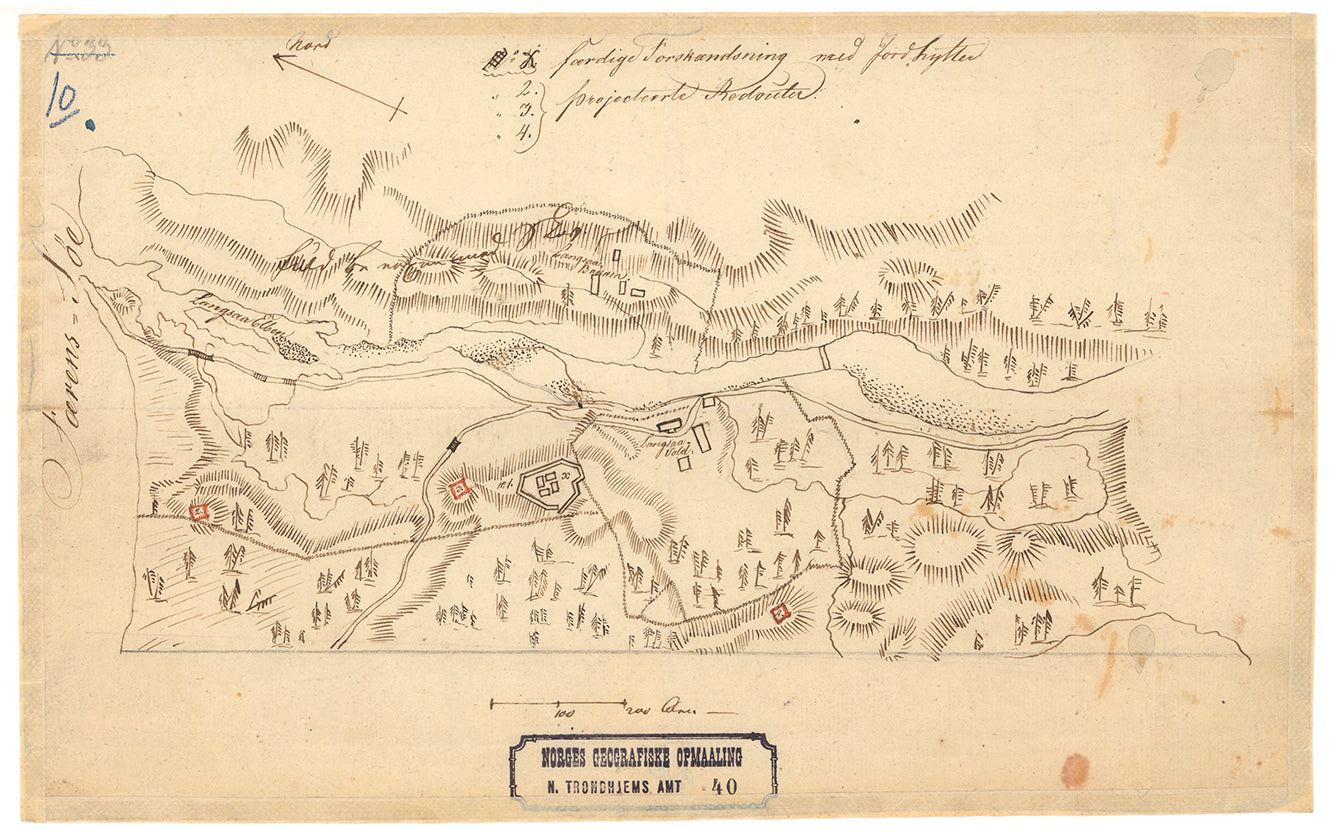 No 33
10
Nord
No 1. færdige Forskandsning med Jordhytter
" 2.
" 3.
" 4.
projecteerte Redouter.
Færens-Söe
Langsaa Elben
Langsaa
No 1.
Langsaa
Vold.
2.
3.
4.
100
200
NORGES GEOGRAFISKE OPMAALING
N. TRONDHJEMS AMT 40